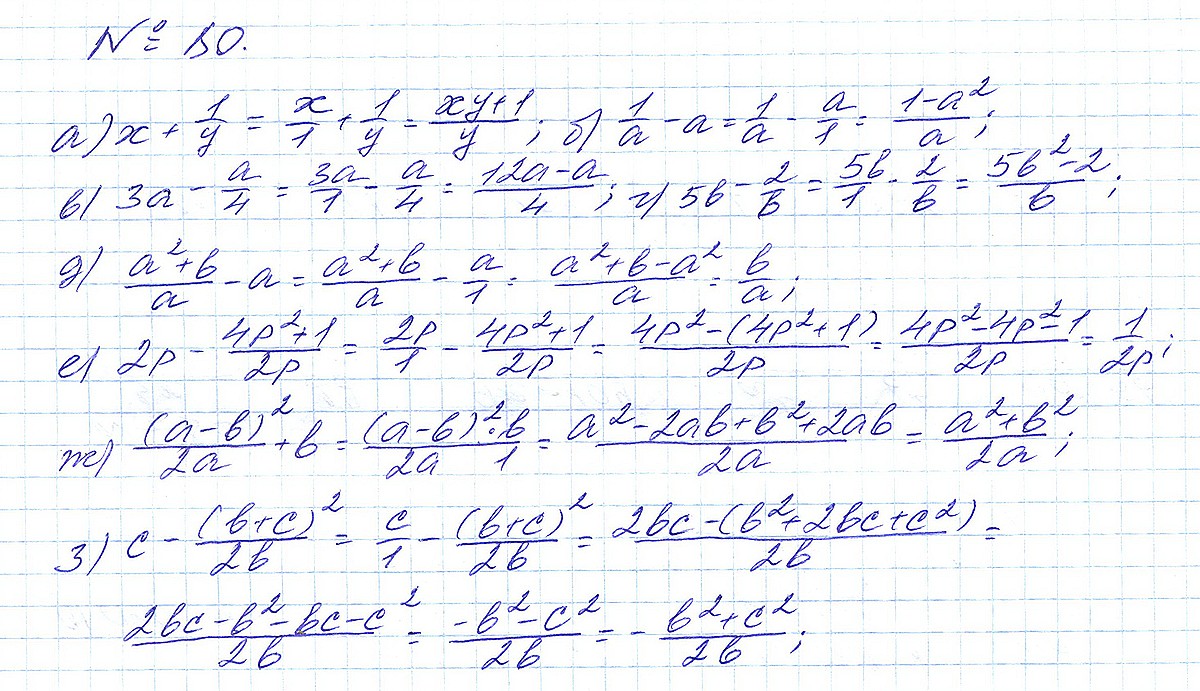 № 80.
а) x + 1/y = x/1 + 1/y = (xy+1)/y; б) 1/a - a = 1/a - a/1 = (1-a²)/a;
в) 3a - a/4 = 3a/1 - a/4 = (12a-a)/4; г) 5b - 2/b = 5b/1 - 2/b = (5b²-2)/b;
д) (a²+b)/a - a = (a²+b)/a - a/1 = (a²+b-a²)/a = b/a;
е) 2p - (4p²+1)/2p = 2p/1 - (4p²+1)/2p = (4p²-(4p²+1))/2p = (4p²-4p²-1)/2p = 1/2p;
ж) (a-b)²/2a + b = (a-b)²/2a : b/1 = (a²-2ab+b²+2ab)/2a = (a²+b²)/2a;
з) c - (b+c)²/2b = c/1 - (b+c)²/2b = (2bc-(b²+2bc+c²))/2b =
(2bc-b²-bc-c²)/2b = (-b²-c²)/2b = - (b²+c²)/2b;